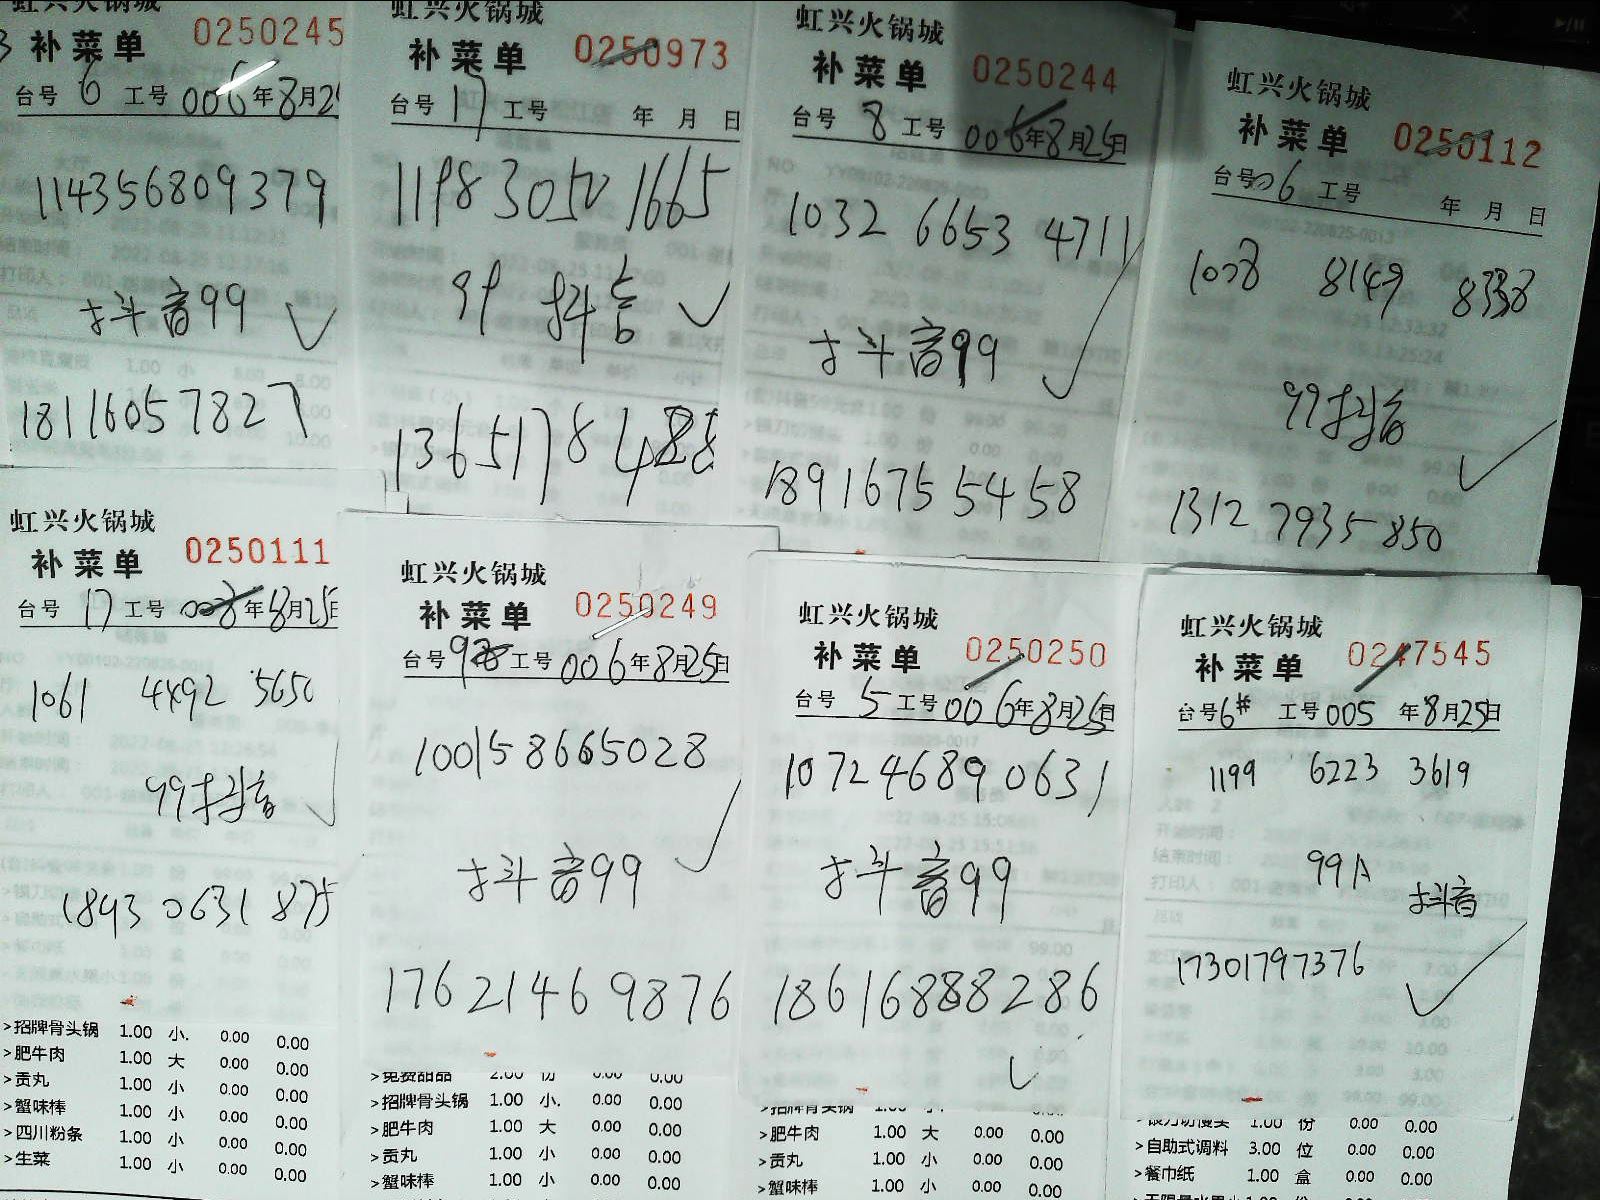 虹兴火锅城
补菜单 0250245
台号 6 工号 006 年 8 月 25
114356809379
抖音99
18116057827
虹兴火锅城
补菜单 0250973
台号 17 工号 年 月 日
1198 3050 1665
99 抖音
虹兴火锅城
补菜单 0250244
台号 8 工号 006 年 8 月 25 日
1032 6653 4711
抖音99
18916755458
虹兴火锅城
补菜单 0250112
台号 06 工号 年 月 日
1038 8149 8338
99抖音
1312 7935 850
虹兴火锅城
补菜单 0250111
台号 17 工号 008 年 8 月 25 日
1061 4492 5650
99抖音
1893 0631 875
>招牌骨头锅 1.00 小. 0.00 0.00
>肥牛肉 1.00 大 0.00 0.00
>贡丸 1.00 小 0.00 0.00
>蟹味棒 1.00 小 0.00 0.00
>四川粉条 1.00 小 0.00 0.00
>生菜 1.00 小 0.00 0.00
虹兴火锅城
补菜单 0250249
台号 98 工号 006 年 8 月 25 日
100158665028
抖音99
17621469876
>免费甜品 2.00 份 0.00 0.00
>招牌骨头锅 1.00 小. 0.00 0.00
>肥牛肉 1.00 大 0.00 0.00
>贡丸 1.00 小 0.00 0.00
>蟹味棒 1.00 小 0.00 0.00
虹兴火锅城
补菜单 0250250
台号 5 工号 006 年 8 月 25 日
107246890631
抖音99
18616888286
>招牌骨头锅
>肥牛肉 1.00 大 0.00 0.00
>贡丸 1.00 小 0.00 0.00
>蟹味棒 1.00 小 0.00 0.00
虹兴火锅城
补菜单 0247545
台号 6# 工号 005 年 8 月 25 日
1199 6223 3619
99A
抖音
17301797376
1.00 份 0.00 0.00
>自助式调料 3.00 位 0.00 0.00
>餐巾纸 1.00 盒 0.00 0.00